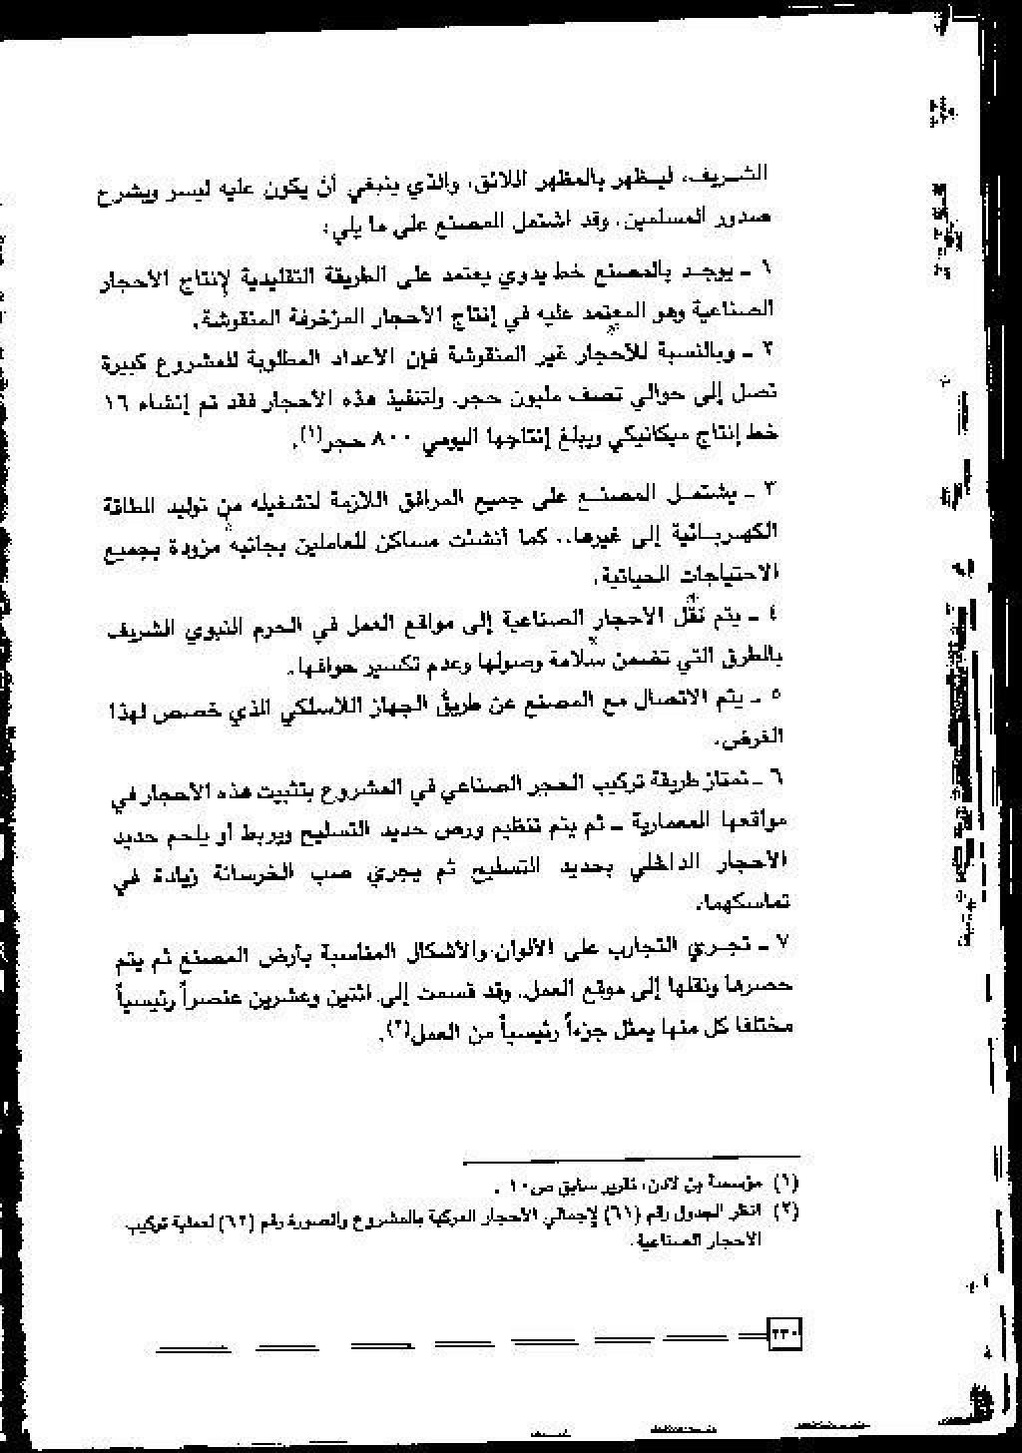 الشريف، ليظهر بالمظهر اللائق، والذي ينبغي أن يكون عليه ليسر ويشرح
صدور المسلمين. وقد اشتمل المصنع على ما يلي:
١ ـ يوجد بالمصنع خط يدوي يعتمد على الطريقة التقليدية لإنتاج الأحجار
الصناعية وهو المعتمد عليه في إنتاج الأحجار المزخرفة المنقوشة.
٢ ـ وبالنسبة للأحجار غير المنقوشة فإن الأعداد المطلوبة للمشروع كبيرة
تصل إلى حوالي نصف مليون حجر. ولتنفيذ هذه الأحجار فقد تم إنشاء ١٦
خط إنتاج ميكانيكي ويبلغ إنتاجها اليومي ٨٠٠ حجر(١).
٣ ـ يشتمل المصنع على جميع المرافق اللازمة لتشغيله من توليد الطاقة
الكهربائية إلى غيرها.. كما أنشئت مساكن للعاملين بجانبه مزودة بجميع
الاحتياجات الحياتية.
٤ ـ يتم نقل الأحجار الصناعية إلى مواقع العمل في الحرم النبوي الشريف
بالطرق التي تضمن سلامة وصولها وعدم تكسير حوافها.
٥ ـ يتم الاتصال مع المصنع عن طريق الجهاز اللاسلكي الذي خصص لهذا
الغرض.
٦ ـ تمتاز طريقة تركيب الحجر الصناعي في المشروع بتثبيت هذه الأحجار في
مواقعها المعمارية ـ ثم يتم تنظيم ورص حديد التسليح ويربط أو يلحم حديد
الأحجار الداخلي بحديد التسليح ثم يجري صب الخرسانة زيادة في
تماسكهما.
٧ ـ تجرى التجارب على الألوان والأشكال المناسبة بأرض المصنع ثم يتم
حصرها ونقلها إلى موقع العمل. وقد قسمت إلى اثنتين وعشرين عنصراً رئيسياً
مختلفا كل منها يمثل جزءاً رئيسياً من العمل(٢).
(١) مؤسسة بن لادن، تقرير سابق ص١٠ .
(٢) انظر الجدول رقم (٦١) لإجمالي الأحجار المركبة بالمشروع والصورة رقم (٦٢) لعملية تركيب
الأحجار الصناعية.
٢٣٠